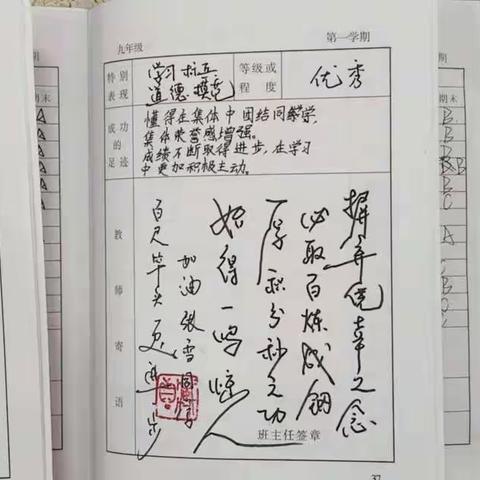 九年级
第一学期
特别
表现
学习标兵
道德模范
等级或
程度
优秀
成功
的
足迹
懂得在集体中团结同学,
集体荣誉感增强。
成绩不断取得进步,在学习
中更加积极主动。
教师寄语
摒弃侥幸之念
必取百炼成钢
厚积分秒之功
始得一鸣惊人
加油张雪同学
百尺竿头更进一步
班主任签章
37
期末
期末